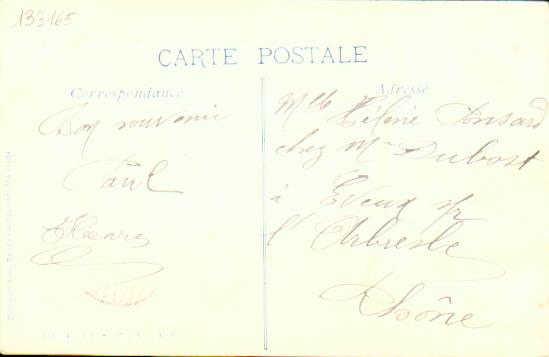 133165
CARTE POSTALE
Correspondance
Adresse
Bon souvenir
Paul
Henry
Mlle Hélène Ponsard
chez Mr Dubost
à Eveux sr
l'Arbresle
Rhône